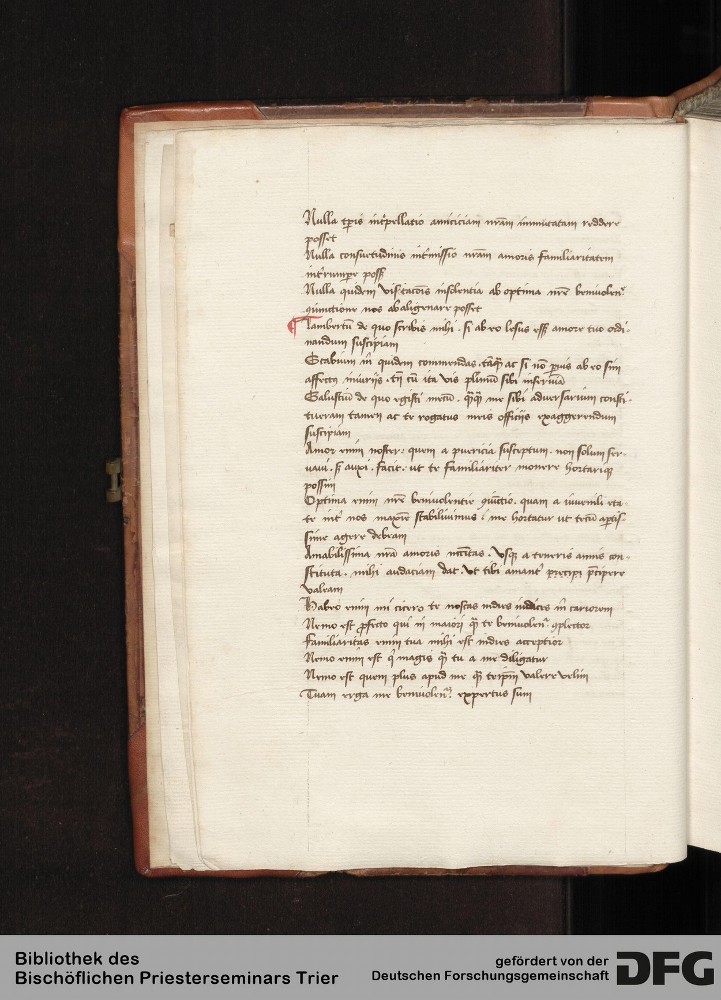 Nulla tp̄is int̄pellatio amiciciam nr̄am inmutatam reddere
posset
Nulla consuetudinis int̄missio nr̄am amoris familiaritatem
int̄rumpere poss&
Nulla quidem insolentia ab optima nr̄e beniuolen
coniunctione nos abaligenare posset
Lambertū de quo scribis mihi . si ab eo lesus ess& amore tuo ordi
nandum suscipiam
Scabium m̄ quidem commendas . ac si nō ab eo sim
affectus iniurijs . cū ita vis sibi
Salustiū de quo egisti mecū . q̄q̄ me sibi aduersarium consti
tueram tamen ac te rogatus meis officijs exaggerendum
suscipiam
Amor enim noster : quem a puericia susceptum . non solum ser
uaui . s& auxi . facit . ut te familiariter monere hortarique
possim
Optima enim nr̄e beniuolentie . quam a iuuenili eta
te int̄ nos maxīe stabiliuimus / me hortatur ut tecū aptis
sime agere debeam
Amabilissima nr̄a amoris . vsq a teneris annis con
stituta . mihi audaciam dat . vt tibi amant̄ p̄cipere
valeam
Habeo enim mi cicero te nostas indies iudices in cariorem
Nemo est profecto qui in maiori q̄ te beniuolen
Familiaritas enim tua mihi est indies acceptior
Nemo enim est q magis q̄ tu a me diligatur
Nemo est quem plus apud me q̄ teip̄m valere velim
Tuam erga me beniuolen expertus sum
Bibliothek des
Bischöflichen Priesterseminars Trier
gefördert von der
Deutschen Forschungsgemeinschaft
DFG